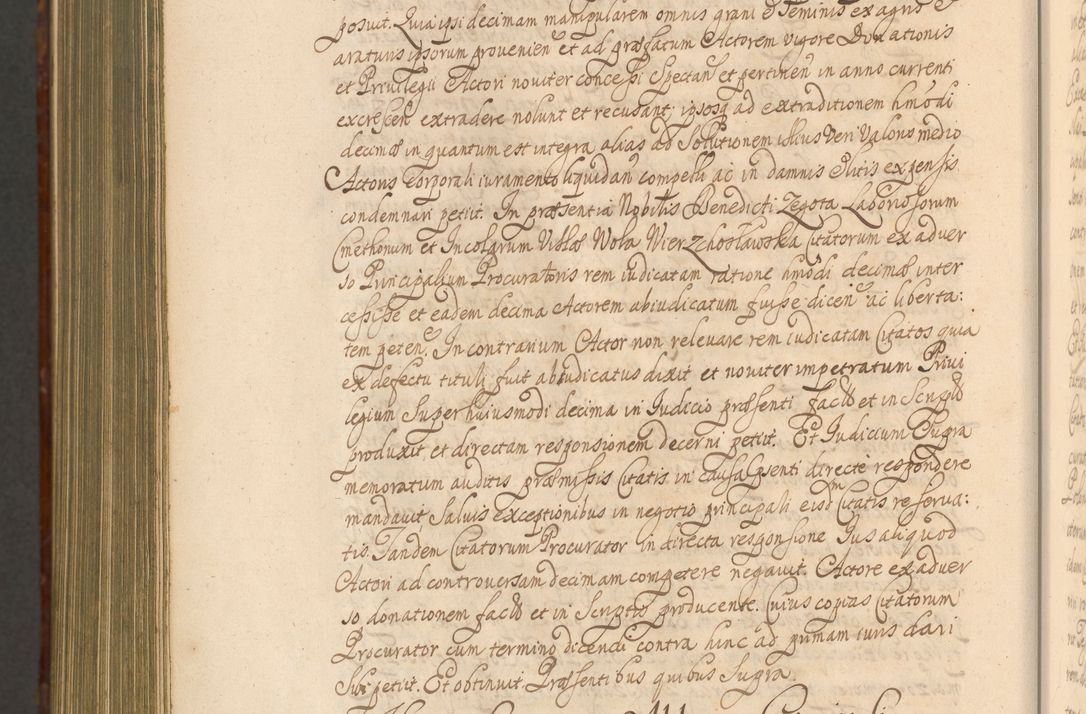 posuit. Quia ipsi decimam manipularem omnis grani & seminis ex agris &
araturis ipsorum provenien et ad præfatum Actorem vigore Donationis
et Privilegii Actori noviter concessi spectan et pertinen in anno currenti
excrescen extradere nolunt et recusant, ipsosq ad extraditionem hmodi
decimæ in quantum est integra alias ad solutionem illius veri valoris medio
Actoris corporali iuramento liquidan compelli ac in damnis & litis expensis
condemnari petiit. In præsentia Nobilis Benedicti Zegota Laboriosorum
Cmethonum et Incolarum Villæ Wola Wierzchosławska Citatorum ex adver
so Principalium Procuratoris rem iudicatam ratione hmodi decimæ inter
cessisse et eadem decima Actorem abiudicatum fuisse dicen ac liberta:
tem peten. In contrarium Actor non relevare rem iudicatam Citatos quia
ex defectu tituli fuit abiudicatus dixit et noviter impetratum Privi
legium super huiusmodi decima in Iudicio præsenti facto et in scripto
produxit et directam responsionem decerni petiit. Et Iudicium Supra
memoratum auditis præmissis Citatis in causa Psenti directe respondere
mandavit salvis exceptionibus in negotio principali eisdm Citatis reserva:
tis. Tandem Citatorum Procurator in directa responsione Ius aliquod
Actori ad controversam decimam competere negavit. Actore ex adver
so donationem facto et in scriptis producente. Cuius copias Citatorum
Procurator cum termino dicendi contra hinc ad primam iuris dari
Sibi petiit. Et obtinuit Præsentibus quibus supra.